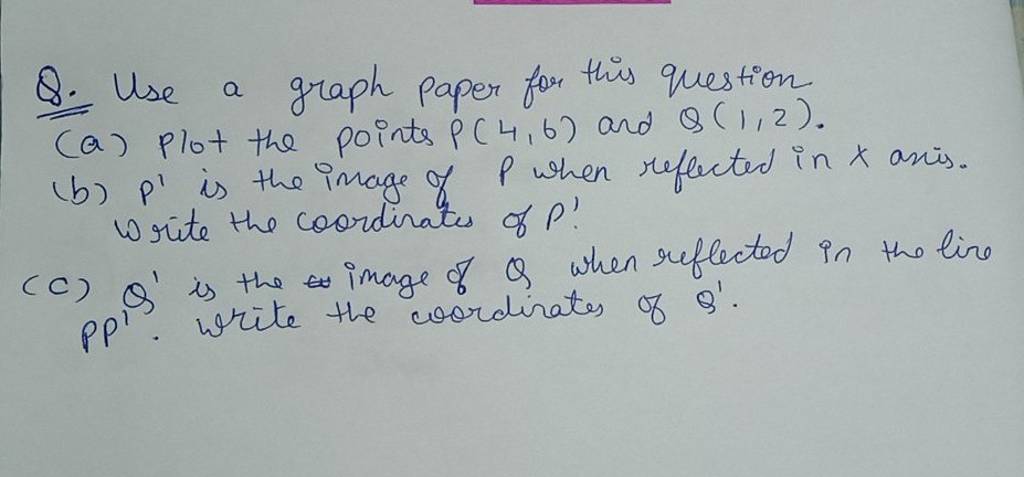 Q. Use a graph paper for this question
(a) Plot the points P(4,6) and Q(1,2).
(b) P' is the image of P when reflected in X axis.
Write the coordinates of P'.
(c) Q' is the image of Q when reflected in the line
PP'. Write the coordinates of Q'.